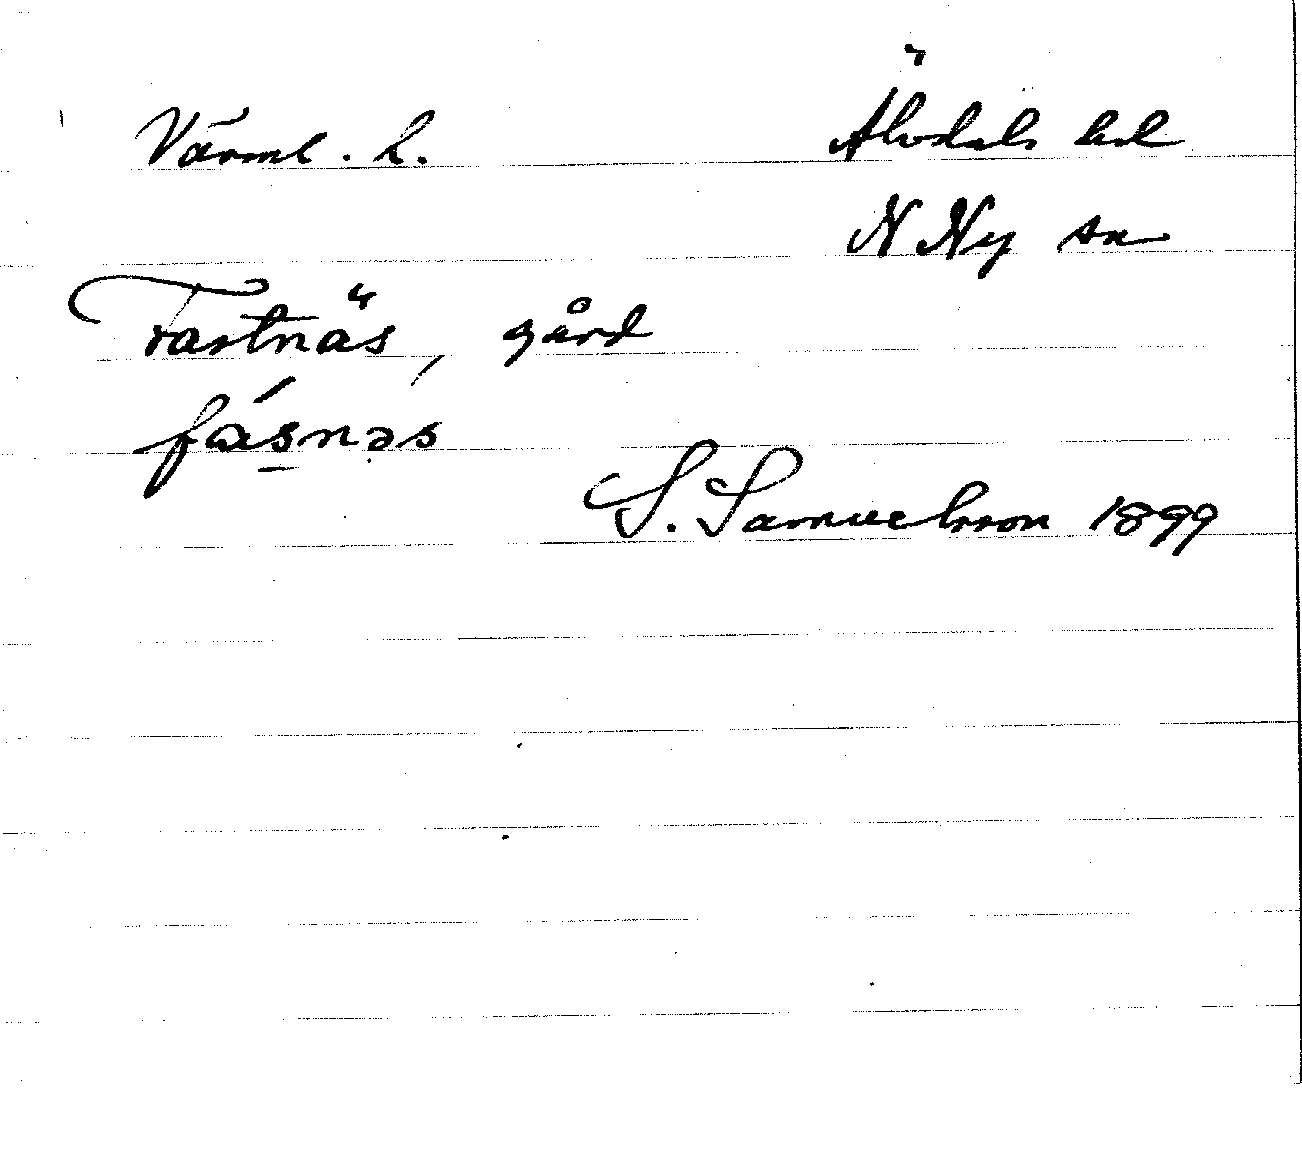 Värml. L. Älvdals hd
N Ny sn
Fastnäs, gård
fásnäs
S. Samuelsson 1899